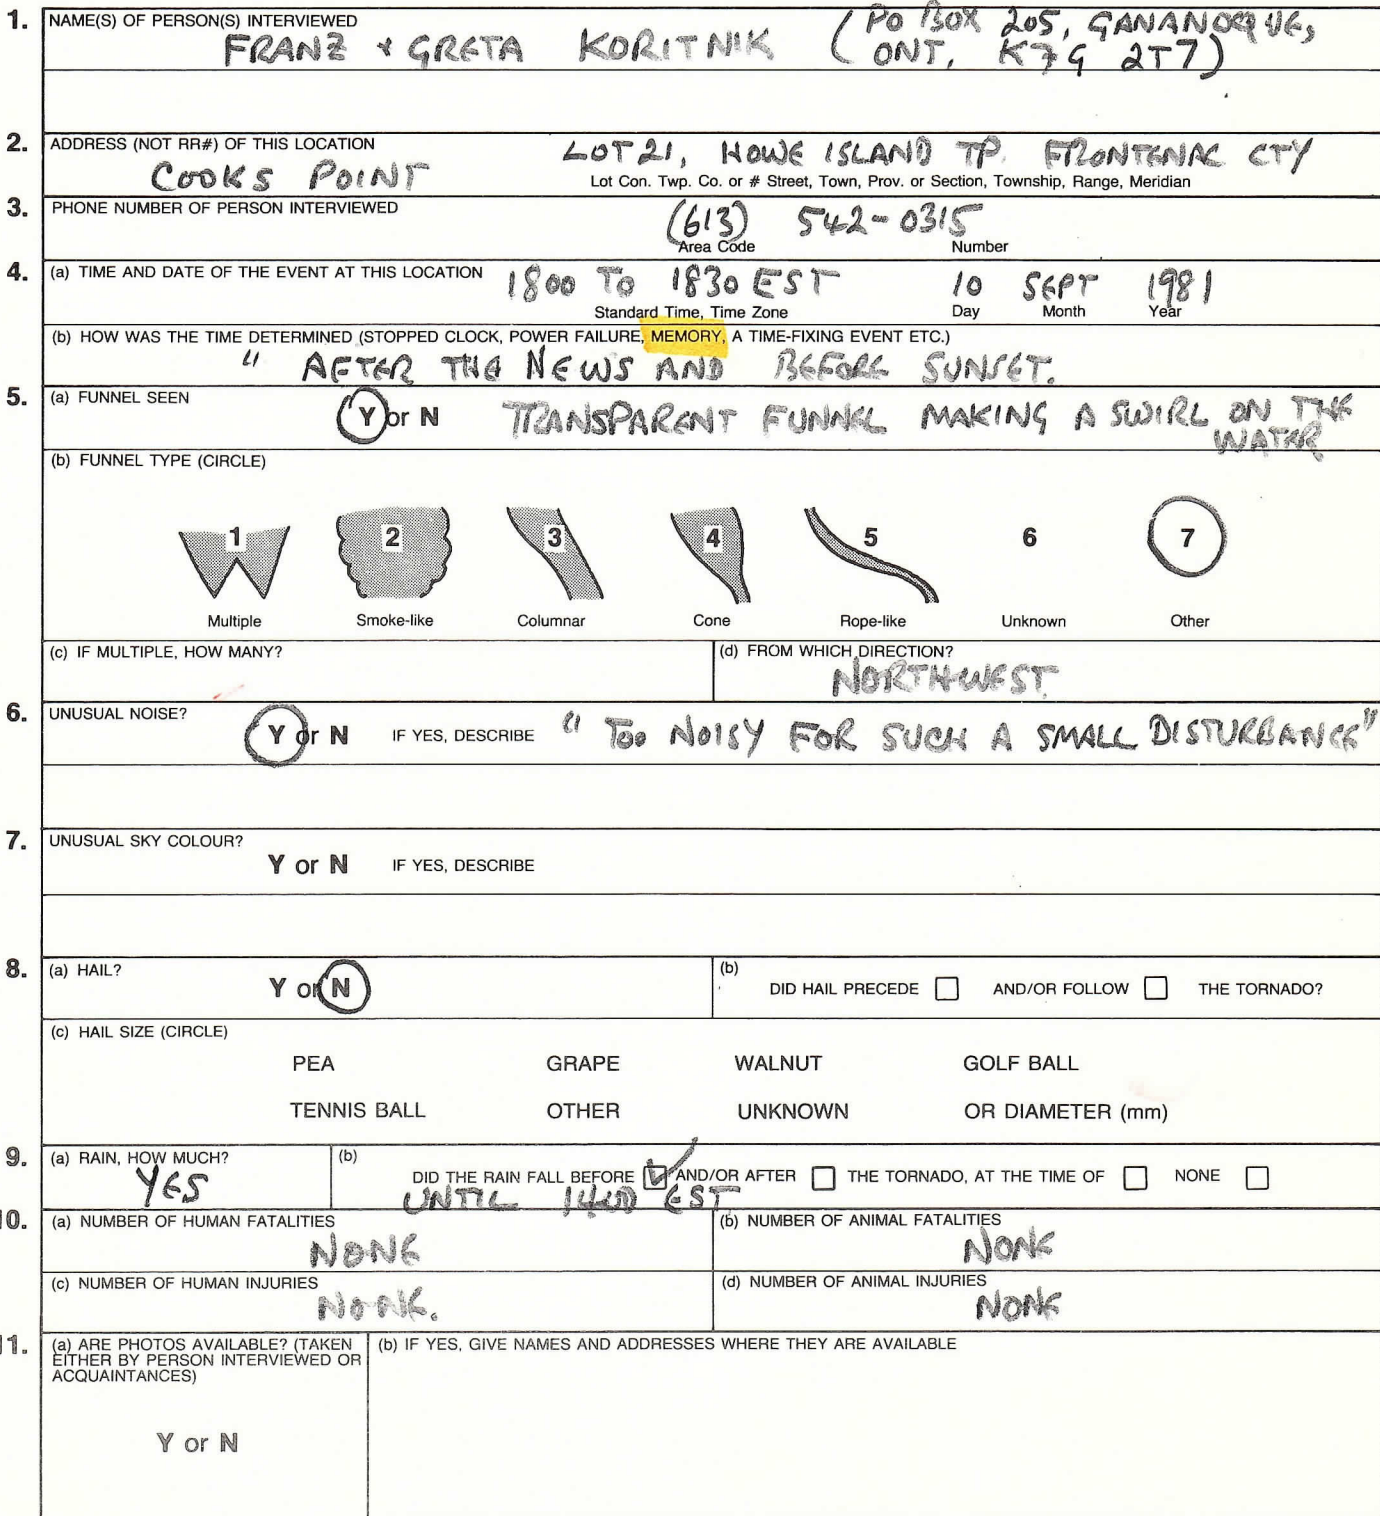 1. NAME(S) OF PERSON(S) INTERVIEWED
FRANZ + GRETA KORITNIK (PO BOX 205, GANANOQUE,
ONT, K7G 2T7)
2. ADDRESS (NOT RR#) OF THIS LOCATION
COOKS POINT LOT 21, HOWE ISLAND TP. FRONTENAC CTY
Lot Con. Twp. Co. or # Street, Town, Prov. or Section, Township, Range, Meridian
3. PHONE NUMBER OF PERSON INTERVIEWED
(613) 542-0315
Area Code Number
4. (a) TIME AND DATE OF THE EVENT AT THIS LOCATION 1800 TO 1830 EST 10 SEPT 1981
Standard Time, Time Zone Day Month Year
(b) HOW WAS THE TIME DETERMINED (STOPPED CLOCK, POWER FAILURE, MEMORY, A TIME-FIXING EVENT ETC.)
" AFTER THE NEWS AND BEFORE SUNSET.
5. (a) FUNNEL SEEN Y or N TRANSPARENT FUNNEL MAKING A SWIRL ON THE
WATER
(b) FUNNEL TYPE (CIRCLE)
1 2 3 4 5 6 7
Multiple Smoke-like Columnar Cone Rope-like Unknown Other
(c) IF MULTIPLE, HOW MANY? (d) FROM WHICH DIRECTION?
NORTH-WEST
6. UNUSUAL NOISE?
Y or N IF YES, DESCRIBE " TOO NOISY FOR SUCH A SMALL DISTURBANCE"
7. UNUSUAL SKY COLOUR?
Y or N IF YES, DESCRIBE
8. (a) HAIL? Y or N (b) DID HAIL PRECEDE AND/OR FOLLOW THE TORNADO?
(c) HAIL SIZE (CIRCLE)
PEA GRAPE WALNUT GOLF BALL
TENNIS BALL OTHER UNKNOWN OR DIAMETER (mm)
9. (a) RAIN, HOW MUCH? (b)
YES DID THE RAIN FALL BEFORE AND/OR AFTER THE TORNADO, AT THE TIME OF NONE
UNTIL 1400 EST
10. (a) NUMBER OF HUMAN FATALITIES (b) NUMBER OF ANIMAL FATALITIES
NONE NONE
(c) NUMBER OF HUMAN INJURIES (d) NUMBER OF ANIMAL INJURIES
NONE. NONE
11. (a) ARE PHOTOS AVAILABLE? (TAKEN (b) IF YES, GIVE NAMES AND ADDRESSES WHERE THEY ARE AVAILABLE
EITHER BY PERSON INTERVIEWED OR
ACQUAINTANCES)
Y or N